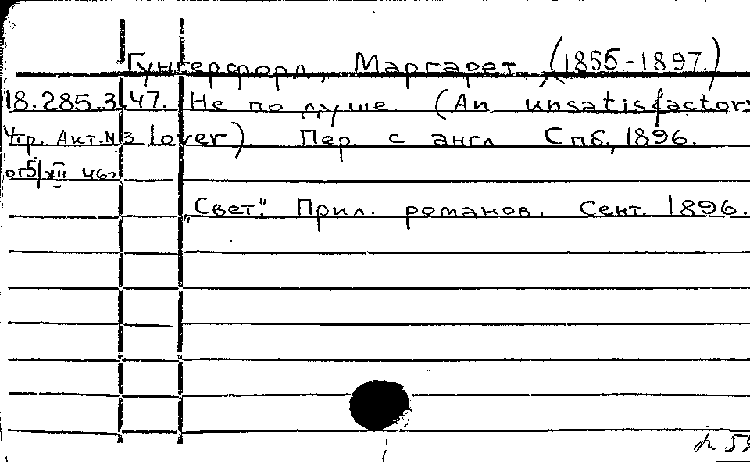 Гунгерфорд, Маргарет (1855-1897)
18.285.3.47. Не по душе. (An unsatisfactory
Утр. Акт. № 3 lover). Пер. с англ. Спб., 1896.
от 5/XII 46г
„Свет". Прил. романов. Сент. 1896.